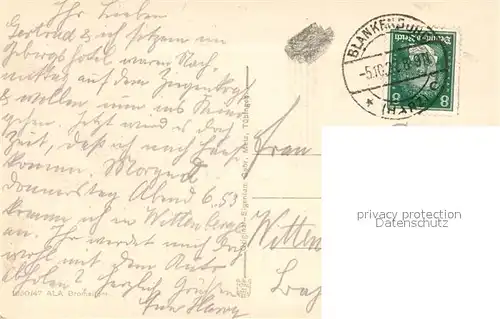 Ihr Lieben!
Gertrud & ich sitzen im
Gebirgshotel waren Nach-
mittag auf dem Ziegenkopf
& wollen nun ins
gehen. Jetzt wird es doch
Zeit, daß ich nach Haus
komme. Morgen
Donnerstag Abend 6.53
komme ich in Wittenberge
an. Ihr werdet mich doch
wohl mit dem Auto
abholen? Herzlich Grüßen
Euer
BLANKENBURG
-5.10.2
(HARZ)
Deutsches Reich
8 8
Frau
Witten
Original-Eigentum Gebr. Metz, Tübingen
privacy protection
watermark